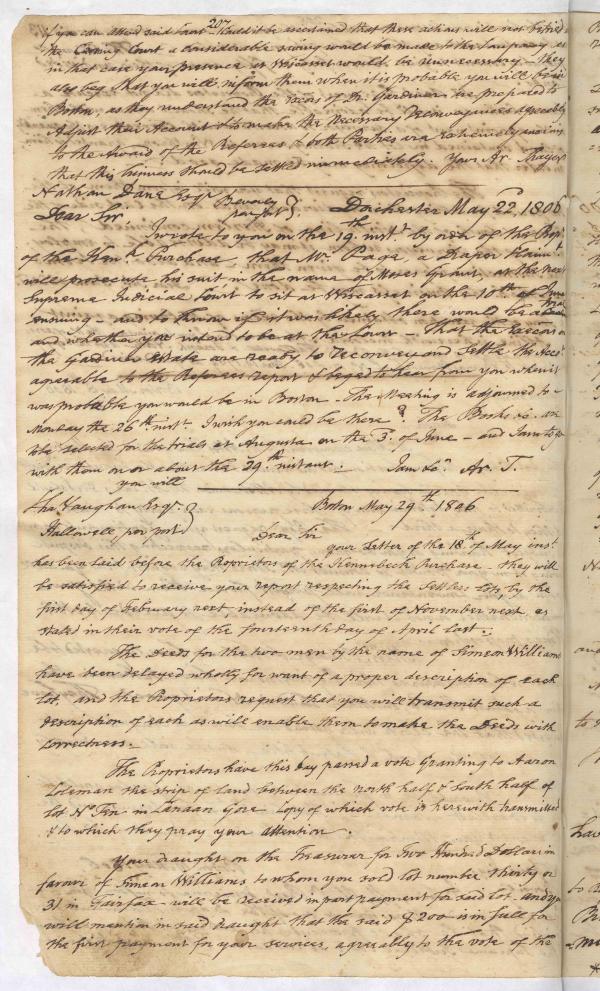 207
if you can attend said Court – Could it be ascertained that these actions will not be tried
the Coming Court a considerable saving would be made to the Company as
in that case your presence at Wiscasset would be unnecessary – they
also beg that you will inform them when it is probable you will be in
Boston, as they understand the Execrs of Dr. Gardiner are prepared to
Adjust their Account & to make the necessary reconveyances agreeably
to the Award of the Referees & both Parties are extremely anxious
that this business should be settled immediately. Yours Ar. Thayer
Nathan Dane Esqr Beverly
per post } Dorchester May 22d, 1806
Dear Sir,
I wrote to you on the 19th inst by order of the Propr
of the Kenk. Purchase, that Mr. Page, a Draper Claimt
will prosecute his suit in the name of Moses Grant, at the next
Supreme Judicial Court to sit at Wiscasset on the 10th of June
ensuing – and to know if it was likely there would be a trial
and whether you intend to be at the Court – That the Execrs of
the Gardiner Estate are ready to reconvey and settle the Acct
agreable to the Referees report & beged to hear from you when it
was probable you would be in Boston. The Meeting is adjourned to
Monday the 26th inst. I wish you could be there. The Books &c. are
to be selected for the trials at Augusta on the 3d. of June – and I am to go
with them on or about the 29th instant. I am &c. Ar. T.
you will
Chas. Vaughan Esqr. } Boston May 29th 1806
Hallowell per post
Dear Sir
your Letter of the 18th of May inst
has been laid before the Proprietors of the Kennebeck Purchase – they will
be satisfied to receive your report respecting the Settlers Lots, by the
first day of February next, instead of the first of November next, as
stated in their vote of the fourteenth day of April last.
The Deeds for the two men by the name of Simeon Williams
have been delayed wholly for want of a proper description of each
lot, and the Proprietors request that you will transmit such a
description of each as will enable them to make the Deeds with
correctness.
The Proprietors have this day passed a vote Granting to Aaron
Coleman the strip of land between the north half & South half of
lot No. Ten in Canaan Gore Copy of which vote is herewith transmitted
& to which they pray your attention.
Your draught on the Treasurer for Two Hundred Dollars in
favour of Simeon Williams to whom you sold lot number thirty one
31 in Fairfax will be received in part payment for said lot, and you
will mention in said draught that the said $200 is in full for
the first payment for your services, agreably to the vote of the